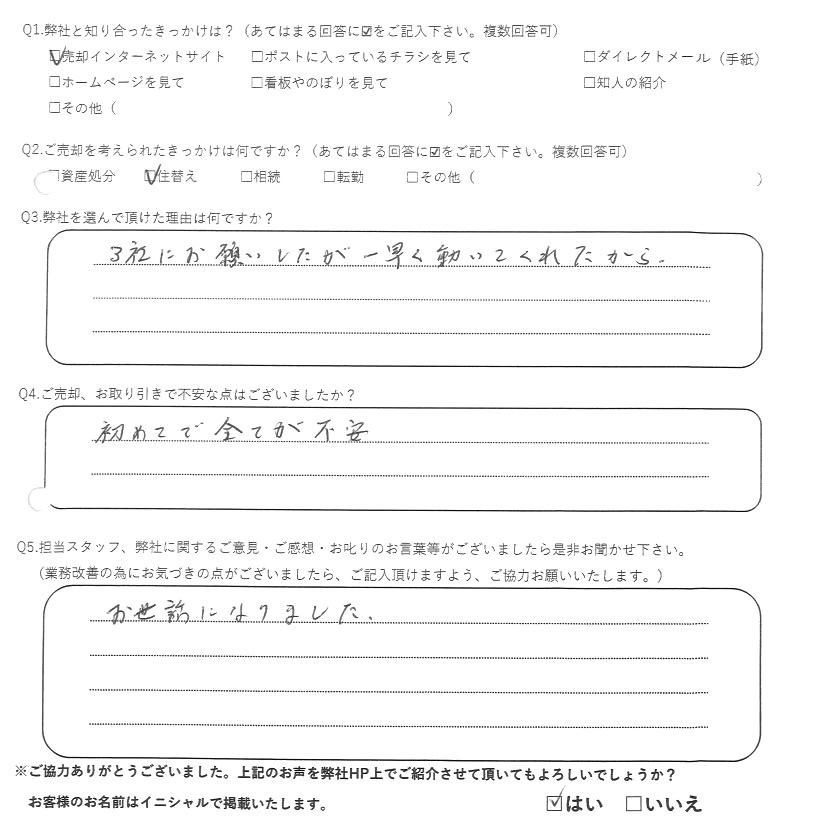 Q1.弊社と知り合ったきっかけは？（あてはまる回答に☑をご記入下さい。複数回答可）
☑売却インターネットサイト □ポストに入っているチラシを見て □ダイレクトメール（手紙）
□ホームページを見て □看板やのぼりを見て □知人の紹介
□その他（ ）
Q2.ご売却を考えられたきっかけは何ですか？（あてはまる回答に☑をご記入下さい。複数回答可）
□資産処分 ☑住替え □相続 □転勤 □その他（ ）
Q3.弊社を選んで頂けた理由は何ですか？
3社にお願いしたが一早く動いてくれたから.
Q4.ご売却、お取り引きで不安な点はございましたか？
初めてで全てが不安
Q5.担当スタッフ、弊社に関するご意見・ご感想・お叱りのお言葉等がございましたら是非お聞かせ下さい。
（業務改善の為にお気づきの点がございましたら、ご記入頂けますよう、ご協力お願いいたします。）
お世話になりました.
※ご協力ありがとうございました。上記のお声を弊社HP上でご紹介させて頂いてもよろしいでしょうか？
お客様のお名前はイニシャルで掲載いたします。 ☑はい □いいえ